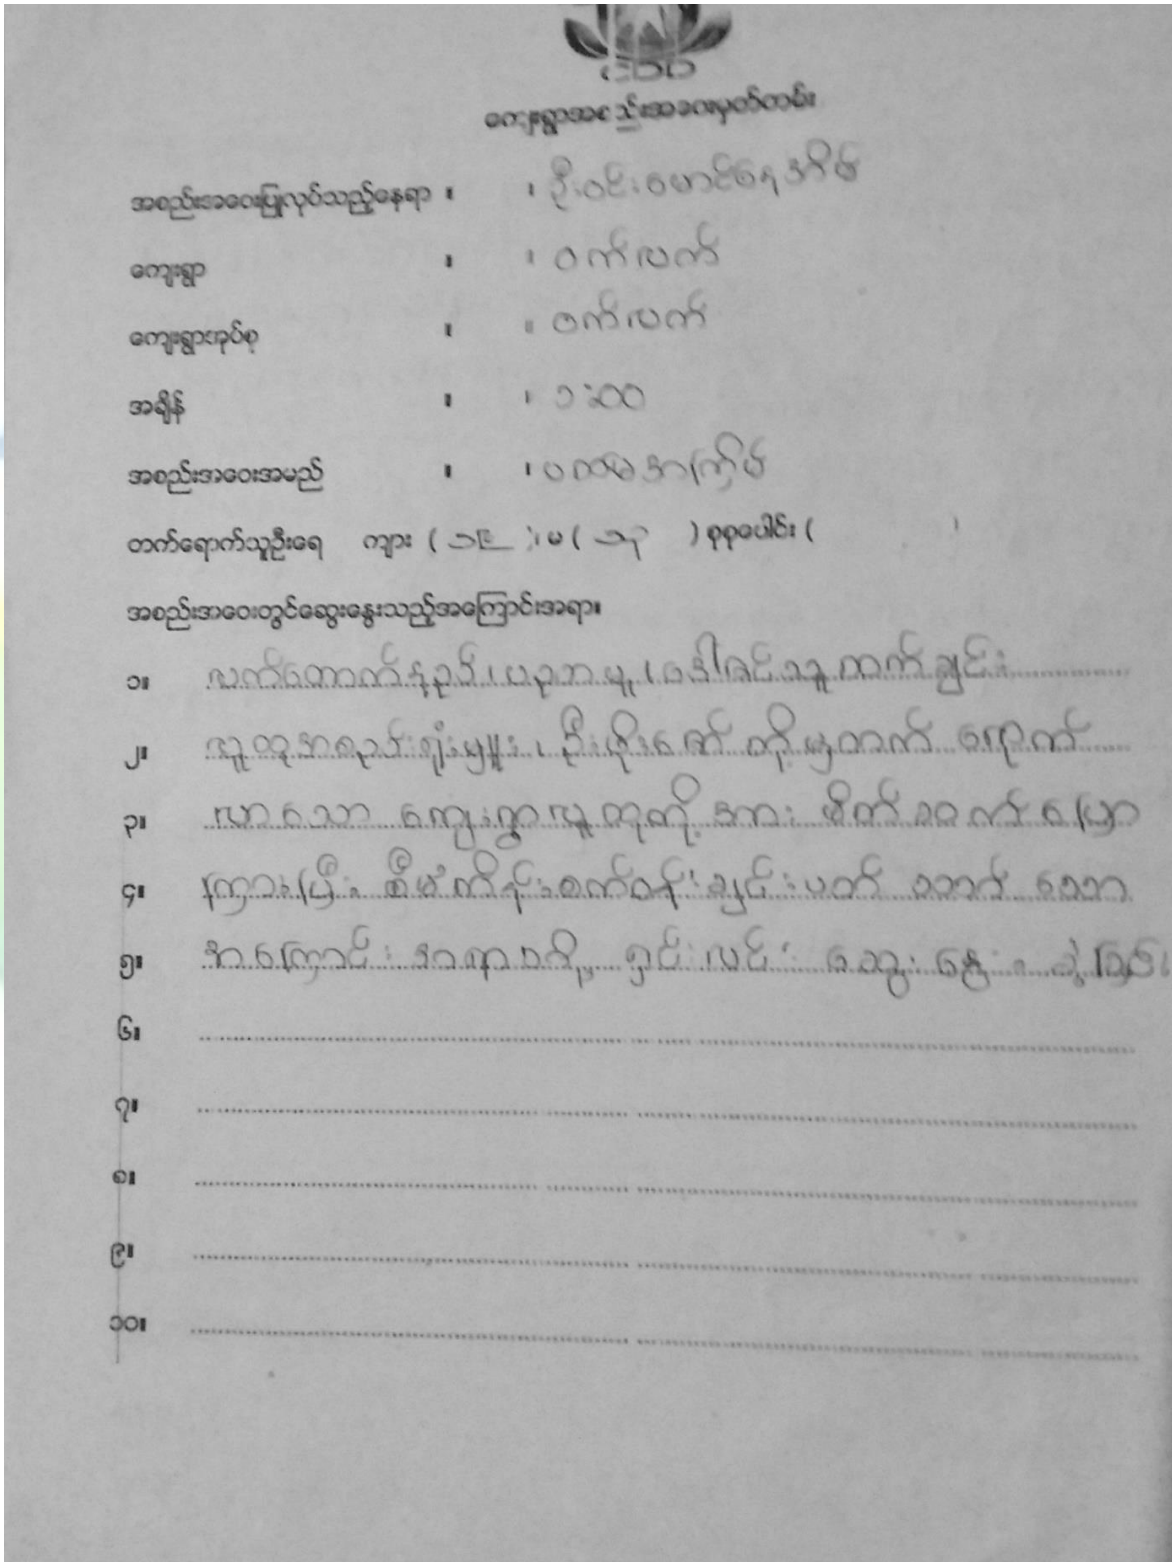 ကျေးရွာအစည်းအဝေးမှတ်တမ်း
အစည်းအဝေးပြုလုပ်သည့်နေရာ ။ ။ ဦးဝင်းမောင်နေအိမ်
ကျေးရွာ ။ ။ ဝက်လက်
ကျေးရွာအုပ်စု ။ ။ ဝက်လက်
အချိန် ။ ။ ၁:၀၀
အစည်းအဝေးအမည် ။ ။ ပထမအကြိမ်
တက်ရောက်သူဦးရေ ကျား ( ၁၉ ) မ ( ၁၃ ) စုစုပေါင်း ( )
အစည်းအဝေးတွင်ဆွေးနွေးသည့်အကြောင်းအရာ။
၁။ လက်ထောက် ပညာမှူး ဒေါ်ခင်သူ
၂။ လူထုအစည်းရုံးမှူး ၊ ဦးဖိုးဇော် တို့မှတက် ရောက်
၃။ လာသော ကျေးရွာလူထုတို့ အား ဖိတ်ခေါ် ပြော
၄။ ကြားပြီး စီမံကိန်း ပတ် သတ် သော
၅။ အကြောင်း အရာတို့ ရှင်းလင်း ဆွေး နွေး ခဲ့ခြင်း
၆။
၇။
၈။
၉။
၁၀။